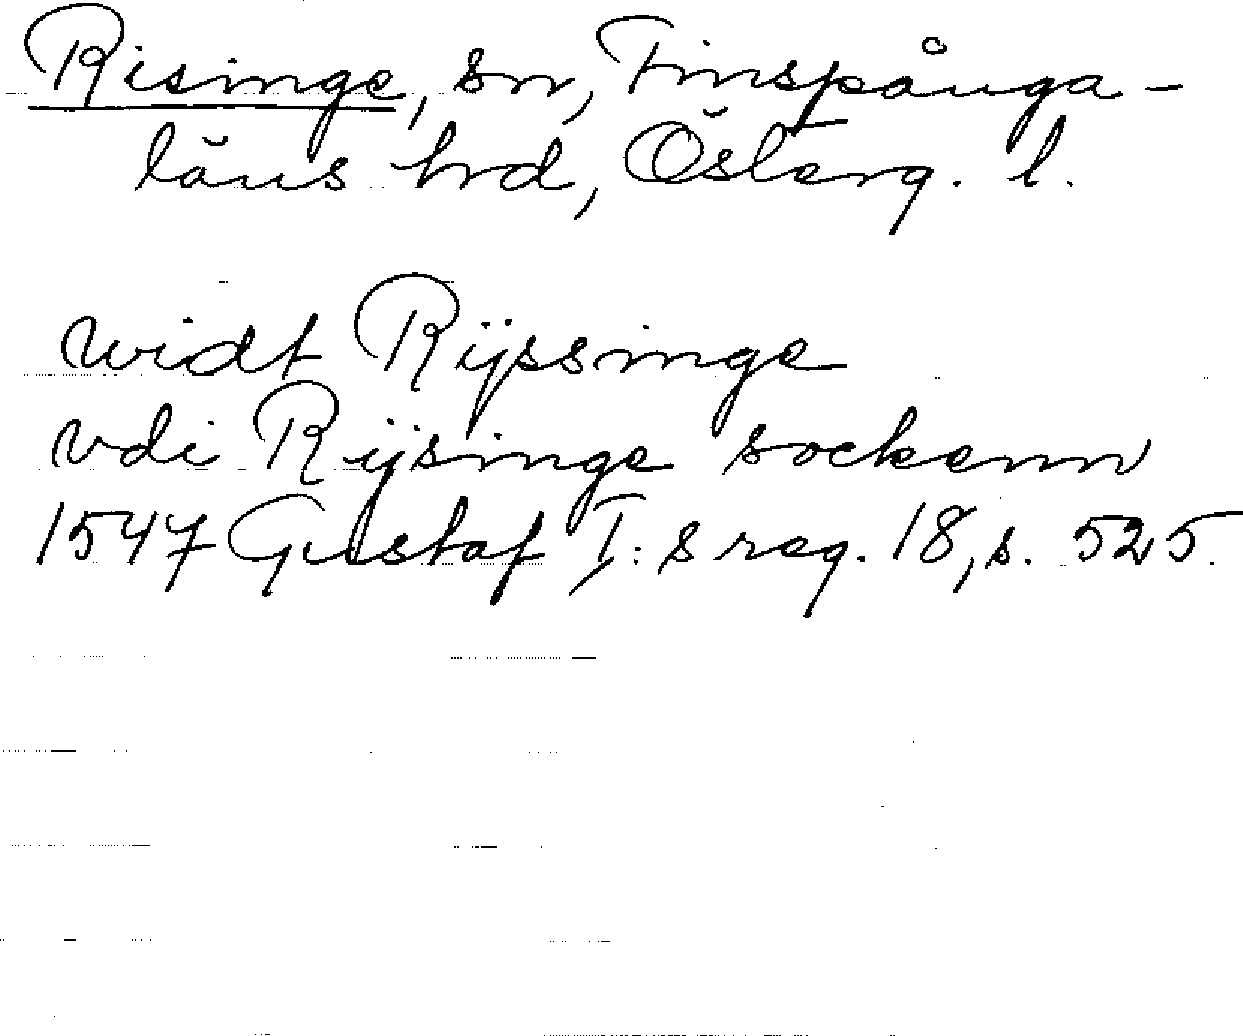 Risinge, sn, Finspånga-
läns hrd, Österg. l.
widt Rijssinge
vdi Rijsinge sockenn
1547 Gustaf I:s reg. 18, s. 525.